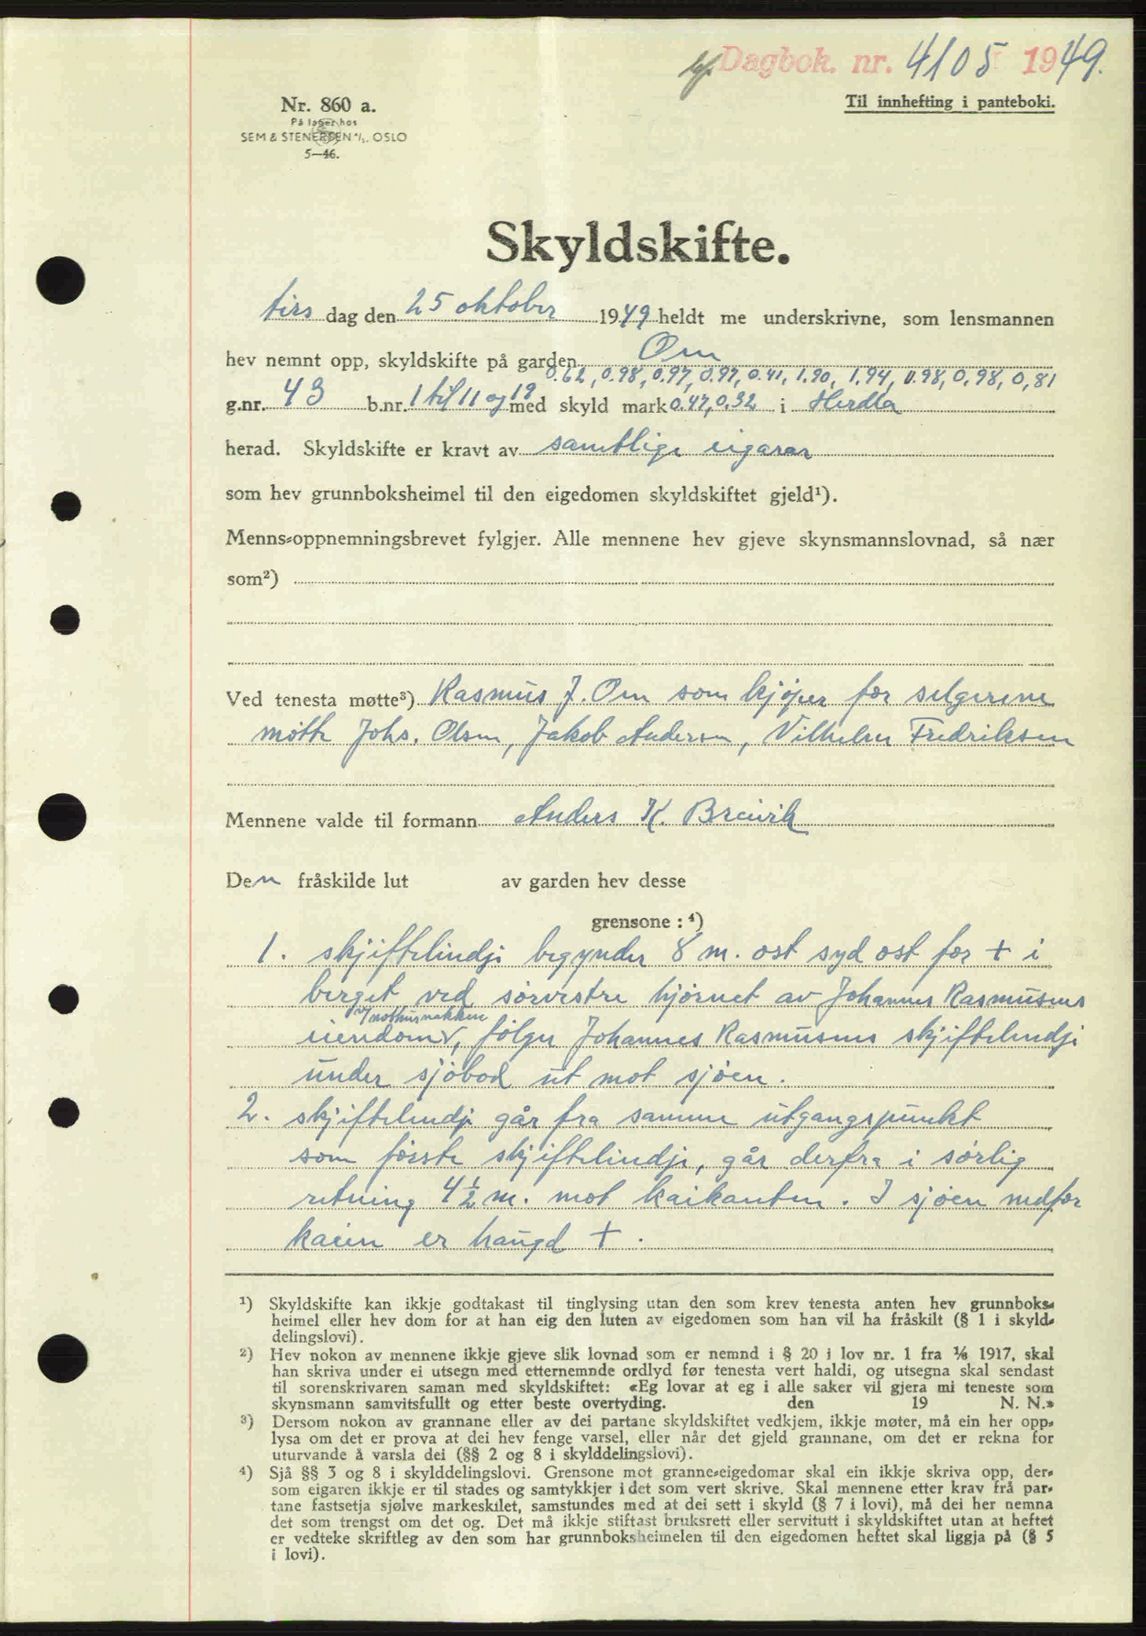 Dagbok. nr. 4105 1949.
Til innhefting i panteboki.
Nr. 860 a.
På lager hos
SEM & STENERSEN A/S, OSLO
5—46.
Skyldskifte.
tirs dag den 25 oktober 1949 heldt me underskrivne, som lensmannen
hev nemnt opp, skyldskifte på garden Om
0.62, 0.98, 0.97, 0.97, 0.41, 1.90, 1.94, 0.98, 0,98, 0,81
g.nr. 43 b.nr. 1 til 11 og 12 med skyld mark 0.47, 0.32 i Herdla
herad. Skyldskifte er kravt av samtlige eigarar
som hev grunnboksheimel til den eigedomen skyldskiftet gjeld¹).
Menns-oppnemningsbrevet fylgjer. Alle mennene hev gjeve skynsmannslovnad, så nær
som²)
Ved tenesta møtte³) Rasmus J. Om som kjøper for selgerene
møtte Johs. Olsen, Jakob Andersen, Vilhelm Fredriksen
Mennene valde til formann Anders K. Breivik
Den fråskilde lut av garden hev desse
grensone : ⁴)
1. skjiftelindji begynder 8 m. ost syd ost for + i
berget ved sørvestre hjørnet av Johannes Rasmusens
v/ nothusnakken
eiendom v, følger Johannes Rasmusens skjiftelindji
under sjøbod ut mot sjøen.
2. skjiftelindji går fra samme utgangspunkt
som første skjiftelindji, går derfra i sørlig
retning 4½ m. mot kaikanten. I sjøen nedfor
kaien er haugd + .
¹) Skyldskifte kan ikkje godtakast til tinglysing utan den som krev tenesta anten hev grunnboks-
heimel eller hev dom for at han eig den luten av eigedomen som han vil ha fråskilt (§ 1 i skyld-
delingslovi).
²) Hev nokon av mennene ikkje gjeve slik lovnad som er nemnd i § 20 i lov nr. 1 fra 1/6 1917, skal
han skriva under ei utsegn med etternemnde ordlyd før tenesta vert haldi, og utsegna skal sendast
til sorenskrivaren saman med skyldskiftet: «Eg lovar at eg i alle saker vil gjera mi teneste som
skynsmann samvitsfullt og etter beste overtyding. den 19 N. N.»
³) Dersom nokon av grannane eller av dei partane skyldskiftet vedkjem, ikkje møter, må ein her opp-
lysa om det er prova at dei hev fenge varsel, eller når det gjeld grannane, om det er rekna for
uturvande å varsla dei (§§ 2 og 8 i skylddelingslovi).
⁴) Sjå §§ 3 og 8 i skylddelingslovi. Grensone mot granne-eigedomar skal ein ikkje skriva opp, der-
som eigaren ikkje er til stades og samtykkjer i det som vert skrive. Skal mennene etter krav frå par-
tane fastsetja sjølve markeskilet, samstundes med at dei sett i skyld (§ 7 i lovi), må dei her nemna
det som trengst om det og. Det må ikkje stiftast bruksrett eller servitutt i skyldskiftet utan at heftet
er vedteke skriftleg av den som har grunnboksheimelen til den eigedomen heftet skal liggja på (§ 5
i lovi).